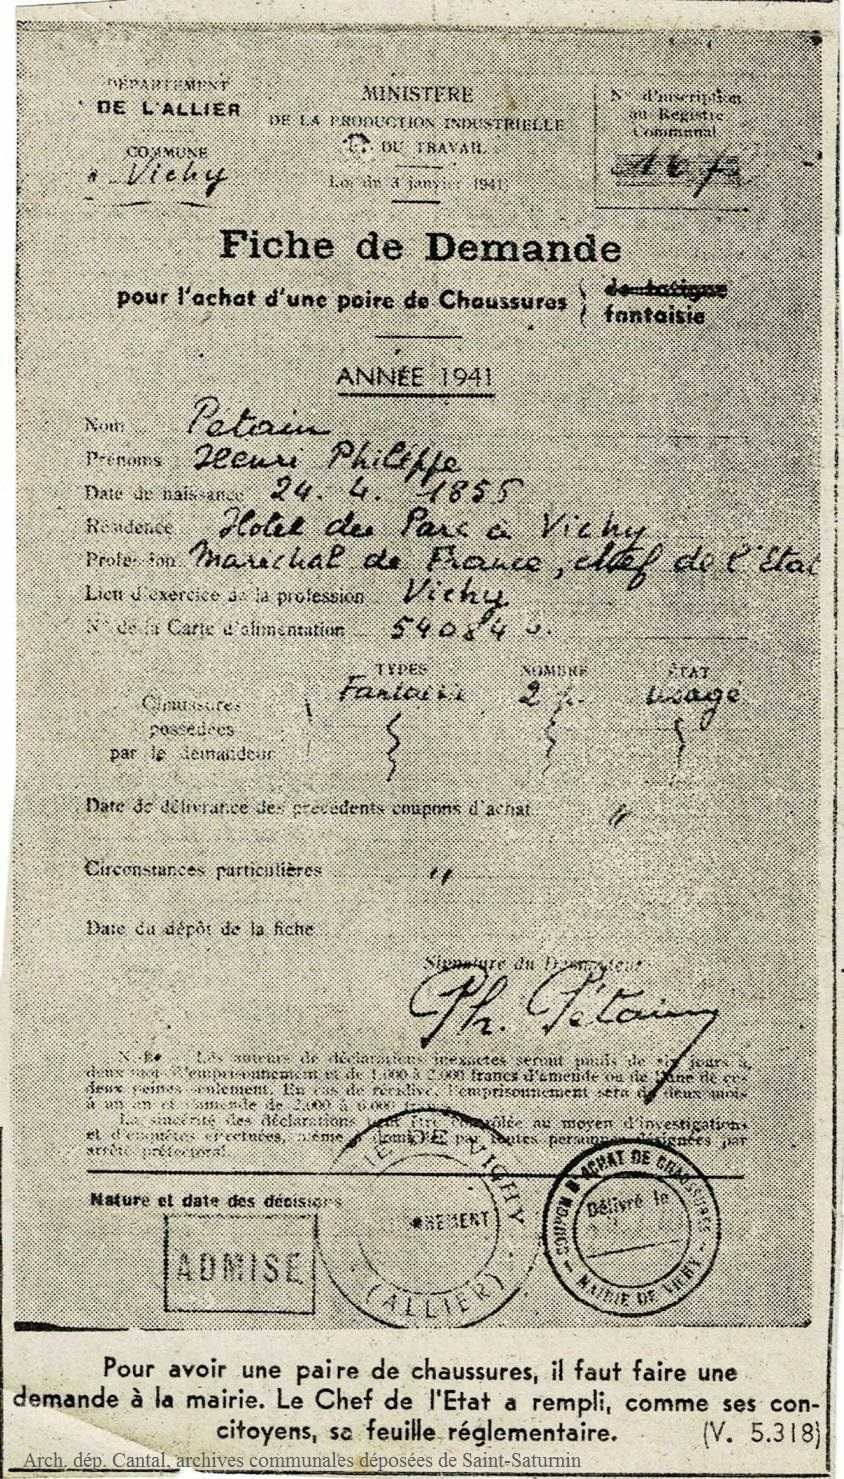 DÉPARTEMENT
DE L'ALLIER
COMMUNE
Vichy
MINISTÈRE
DE LA PRODUCTION INDUSTRIELLE
ET DU TRAVAIL
Loi du 3 janvier 1941)
N° d'inscription
au Registre
Communal
Fiche de Demande
pour l'achat d'une paire de Chaussures
de fatigue
fantaisie
ANNÉE 1941
Nom Pétain
Prénoms Henri Philippe
Date de naissance 24. 4. 1856
Résidence Hotel du Parc à Vichy
Profession Maréchal de France, chef de l'Etat
Lieu d'exercice de la profession Vichy
N° de la Carte d'alimentation 54084
TYPES NOMBRE ÉTAT
Fantaisie 2 p. usagé
Chaussures
possédées
par le demandeur
Date de délivrance des précédents coupons d'achat "
Circonstances particulières "
Date du dépôt de la fiche
Signature du Demandeur
Ph. Pétain
N.B. — Les auteurs de déclarations inexactes seront punis de six jours à
deux mois d'emprisonnement et de 1.000 à 2.000 francs d'amende ou de l'une de ces
deux peines seulement. En cas de récidive, l'emprisonnement sera de deux mois
à un an et l'amende de 2.000 à 6.000 francs.
La sincérité des déclarations peut être contrôlée au moyen d'investigations
et d'enquêtes effectuées, même à domicile par toutes personnes désignées par
arrêté préfectoral.
Nature et date des décisions
ADMISE
DE VICHY
(ALLIER)
COUPON D'ACHAT DE CHAUSSURES
Délivré le
MAIRIE DE VICHY
Pour avoir une paire de chaussures, il faut faire une
demande à la mairie. Le Chef de l'Etat a rempli, comme ses con-
citoyens, sa feuille réglementaire. (V. 5.318)
Arch. dép. Cantal, archives communales déposées de Saint-Saturnin